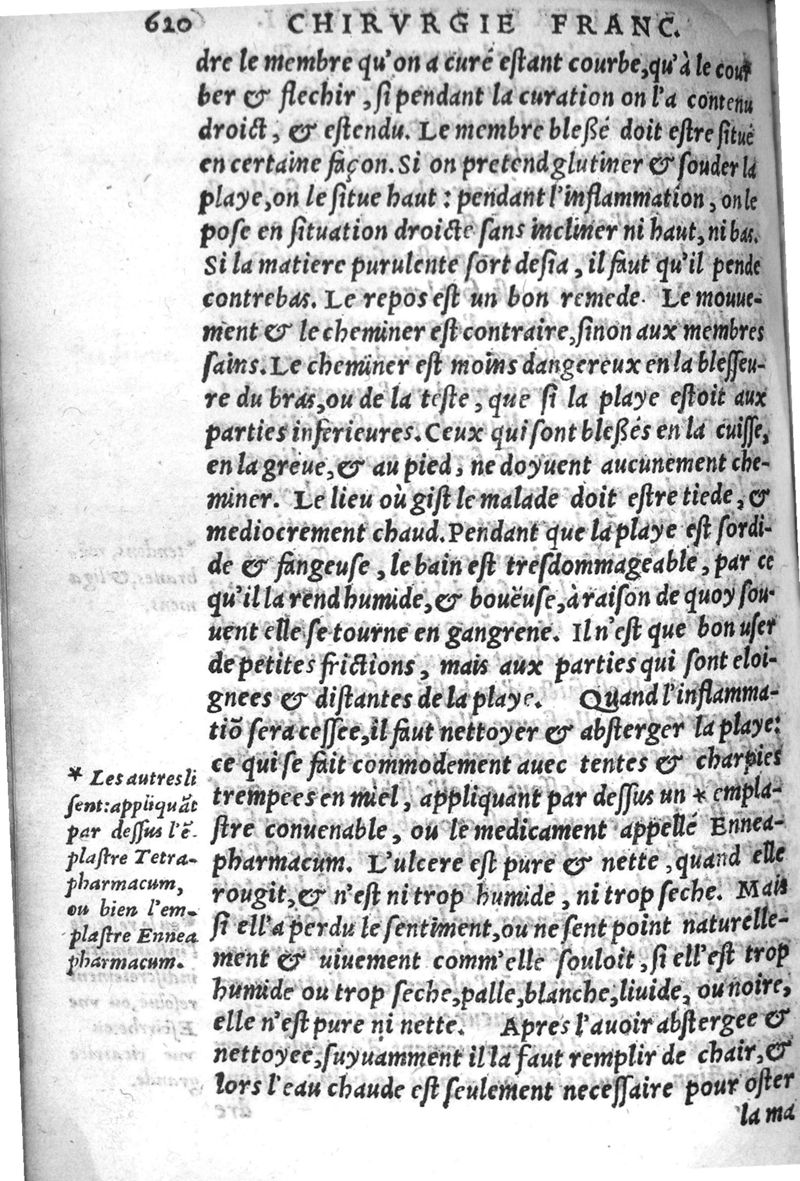 620 CHIRVRGIE FRANC.
dre le membre qu'on a curé eſtant courbe,qu'à le cour
ber & flechir , ſi pendant la curation on l'a contenu
droict , & eſtendu. Le membre bleßé doit eſtre ſitué
en certaine façon. Si on pretend glutiner & ſouder la
playe,on le ſitue haut : pendant l'inflammation , on le
poſe en ſituation droicte ſans incliner ni haut, ni bas.
Si la matiere purulente ſort deſia , il faut qu'il pende
contrebas. Le repos eſt un bon remede. Le mouue-
ment & le cheminer eſt contraire,ſinon aux membres
ſains. Le cheminer eſt moins dangereux en la bleſſeu-
re du bras,ou de la teſte , que ſi la playe eſtoit aux
parties inferieures. Ceux qui ſont bleßés en la cuiſſe,
en la greue, & au pied, ne doyuent aucunement che-
miner. Le lieu où giſt le malade doit eſtre tiede , &
mediocrement chaud. Pendant que la playe eſt ſordi-
de & fangeuſe , le bain eſt treſdommageable , par ce
qu'il la rend humide, & bouëuſe, à raiſon de quoy ſou-
uent elle ſe tourne en gangrene. Il n'eſt que bon uſer
de petites frictions , mais aux parties qui ſont eloi-
gnees & diſtantes de la playe. Quand l'inflamma-
tiõ ſera ceſſee,il faut nettoyer & abſterger la playe:
ce qui ſe fait commodement auec tentes & charpies
trempees en miel , appliquant par deſſus un * empla-
ſtre conuenable , ou le medicament appellé Ennea-
pharmacum. L'ulcere eſt pure & nette , quand elle
rougit, & n'eſt ni trop humide , ni trop ſeche. Mais
ſi ell'a perdu le ſentiment,ou ne ſent point naturelle-
ment & uiuement comm'elle ſouloit , ſi ell'eſt trop
humide ou trop ſeche,palle,blanche,liuide, ou noire,
elle n'eſt pure ni nette. Apres l'auoir abſtergee &
nettoyee,ſuyuamment il la faut remplir de chair, &
lors l'eau chaude eſt ſeulement neceſſaire pour oſter
la ma
* Les autres li
ſent:appliquãt
par deſſus l'ẽ-
plaſtre Tetra-
pharmacum,
ou bien l'em-
plaſtre Ennea
pharmacum.